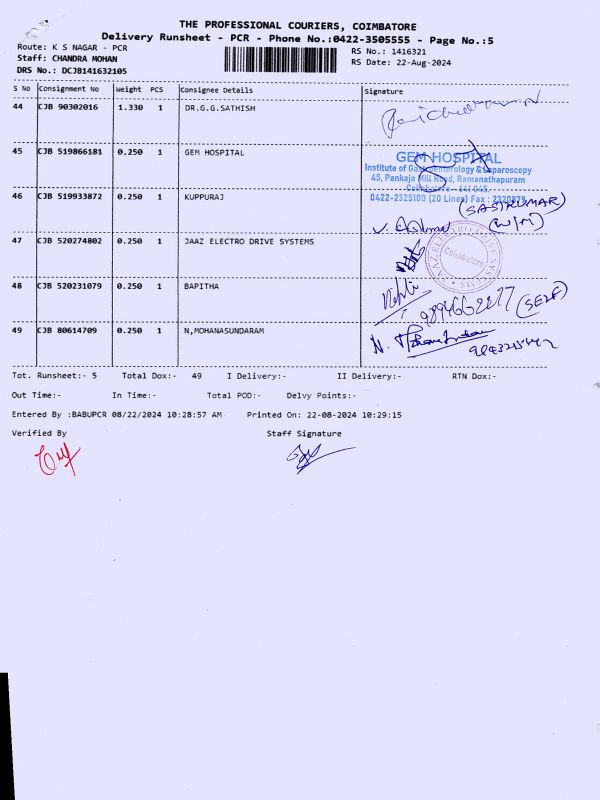 THE PROFESSIONAL COURIERS, COIMBATORE
Delivery Runsheet - PCR - Phone No.:0422-3505555 - Page No.:5
Route: K S NAGAR - PCR
RS No.: 1416321
Staff: CHANDRA MOHAN
RS Date: 22-Aug-2024
DRS No.: DCJB141632105
S No Consignment No Weight PCS Consignee Details Signature
44 CJB 90302016 1.330 1 DR.G.G.SATHISH
45 CJB 519866181 0.250 1 GEM HOSPITAL
GEM HOSPITAL
Institute of Gastroenterology & Laparoscopy
45, Pankaja Mill Road, Ramanathapuram
Coimbatore - 641 045.
0422-2325100 (20 Lines) Fax : 2320879
46 CJB 519933872 0.250 1 KUPPURAJ
(SASIKUMAR)
47 CJB 520274802 0.250 1 JAAZ ELECTRO DRIVE SYSTEMS
JAAZ ELECTRO DRIVE SYSTEMS
Coimbatore
48 CJB 520231079 0.250 1 BAPITHA
(SELF)
49 CJB 80614709 0.250 1 N,MOHANASUNDARAM
Tot. Runsheet:- 5 Total Dox:- 49 I Delivery:- II Delivery:- RTN Dox:-
Out Time:- In Time:- Total POD:- Delvy Points:-
Entered By :BABUPCR 08/22/2024 10:28:57 AM Printed On: 22-08-2024 10:29:15
Verified By Staff Signature